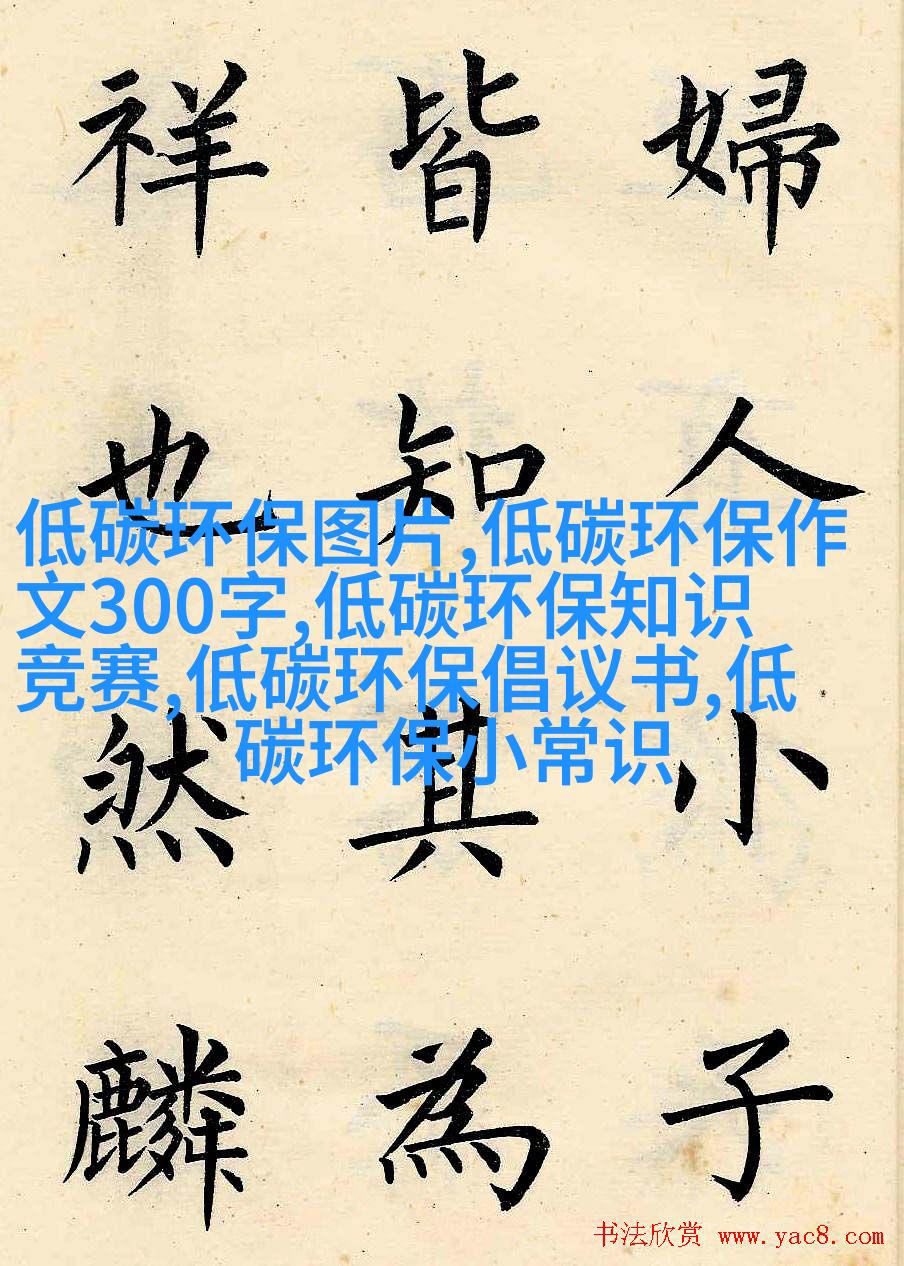 婦人小子
皆知其為
祥也然麟
低碳环保图片,低碳环保作
文300字,低碳环保知识
竞赛,低碳环保倡议书,低
碳环保小常识
书法欣赏 www.yac8.com